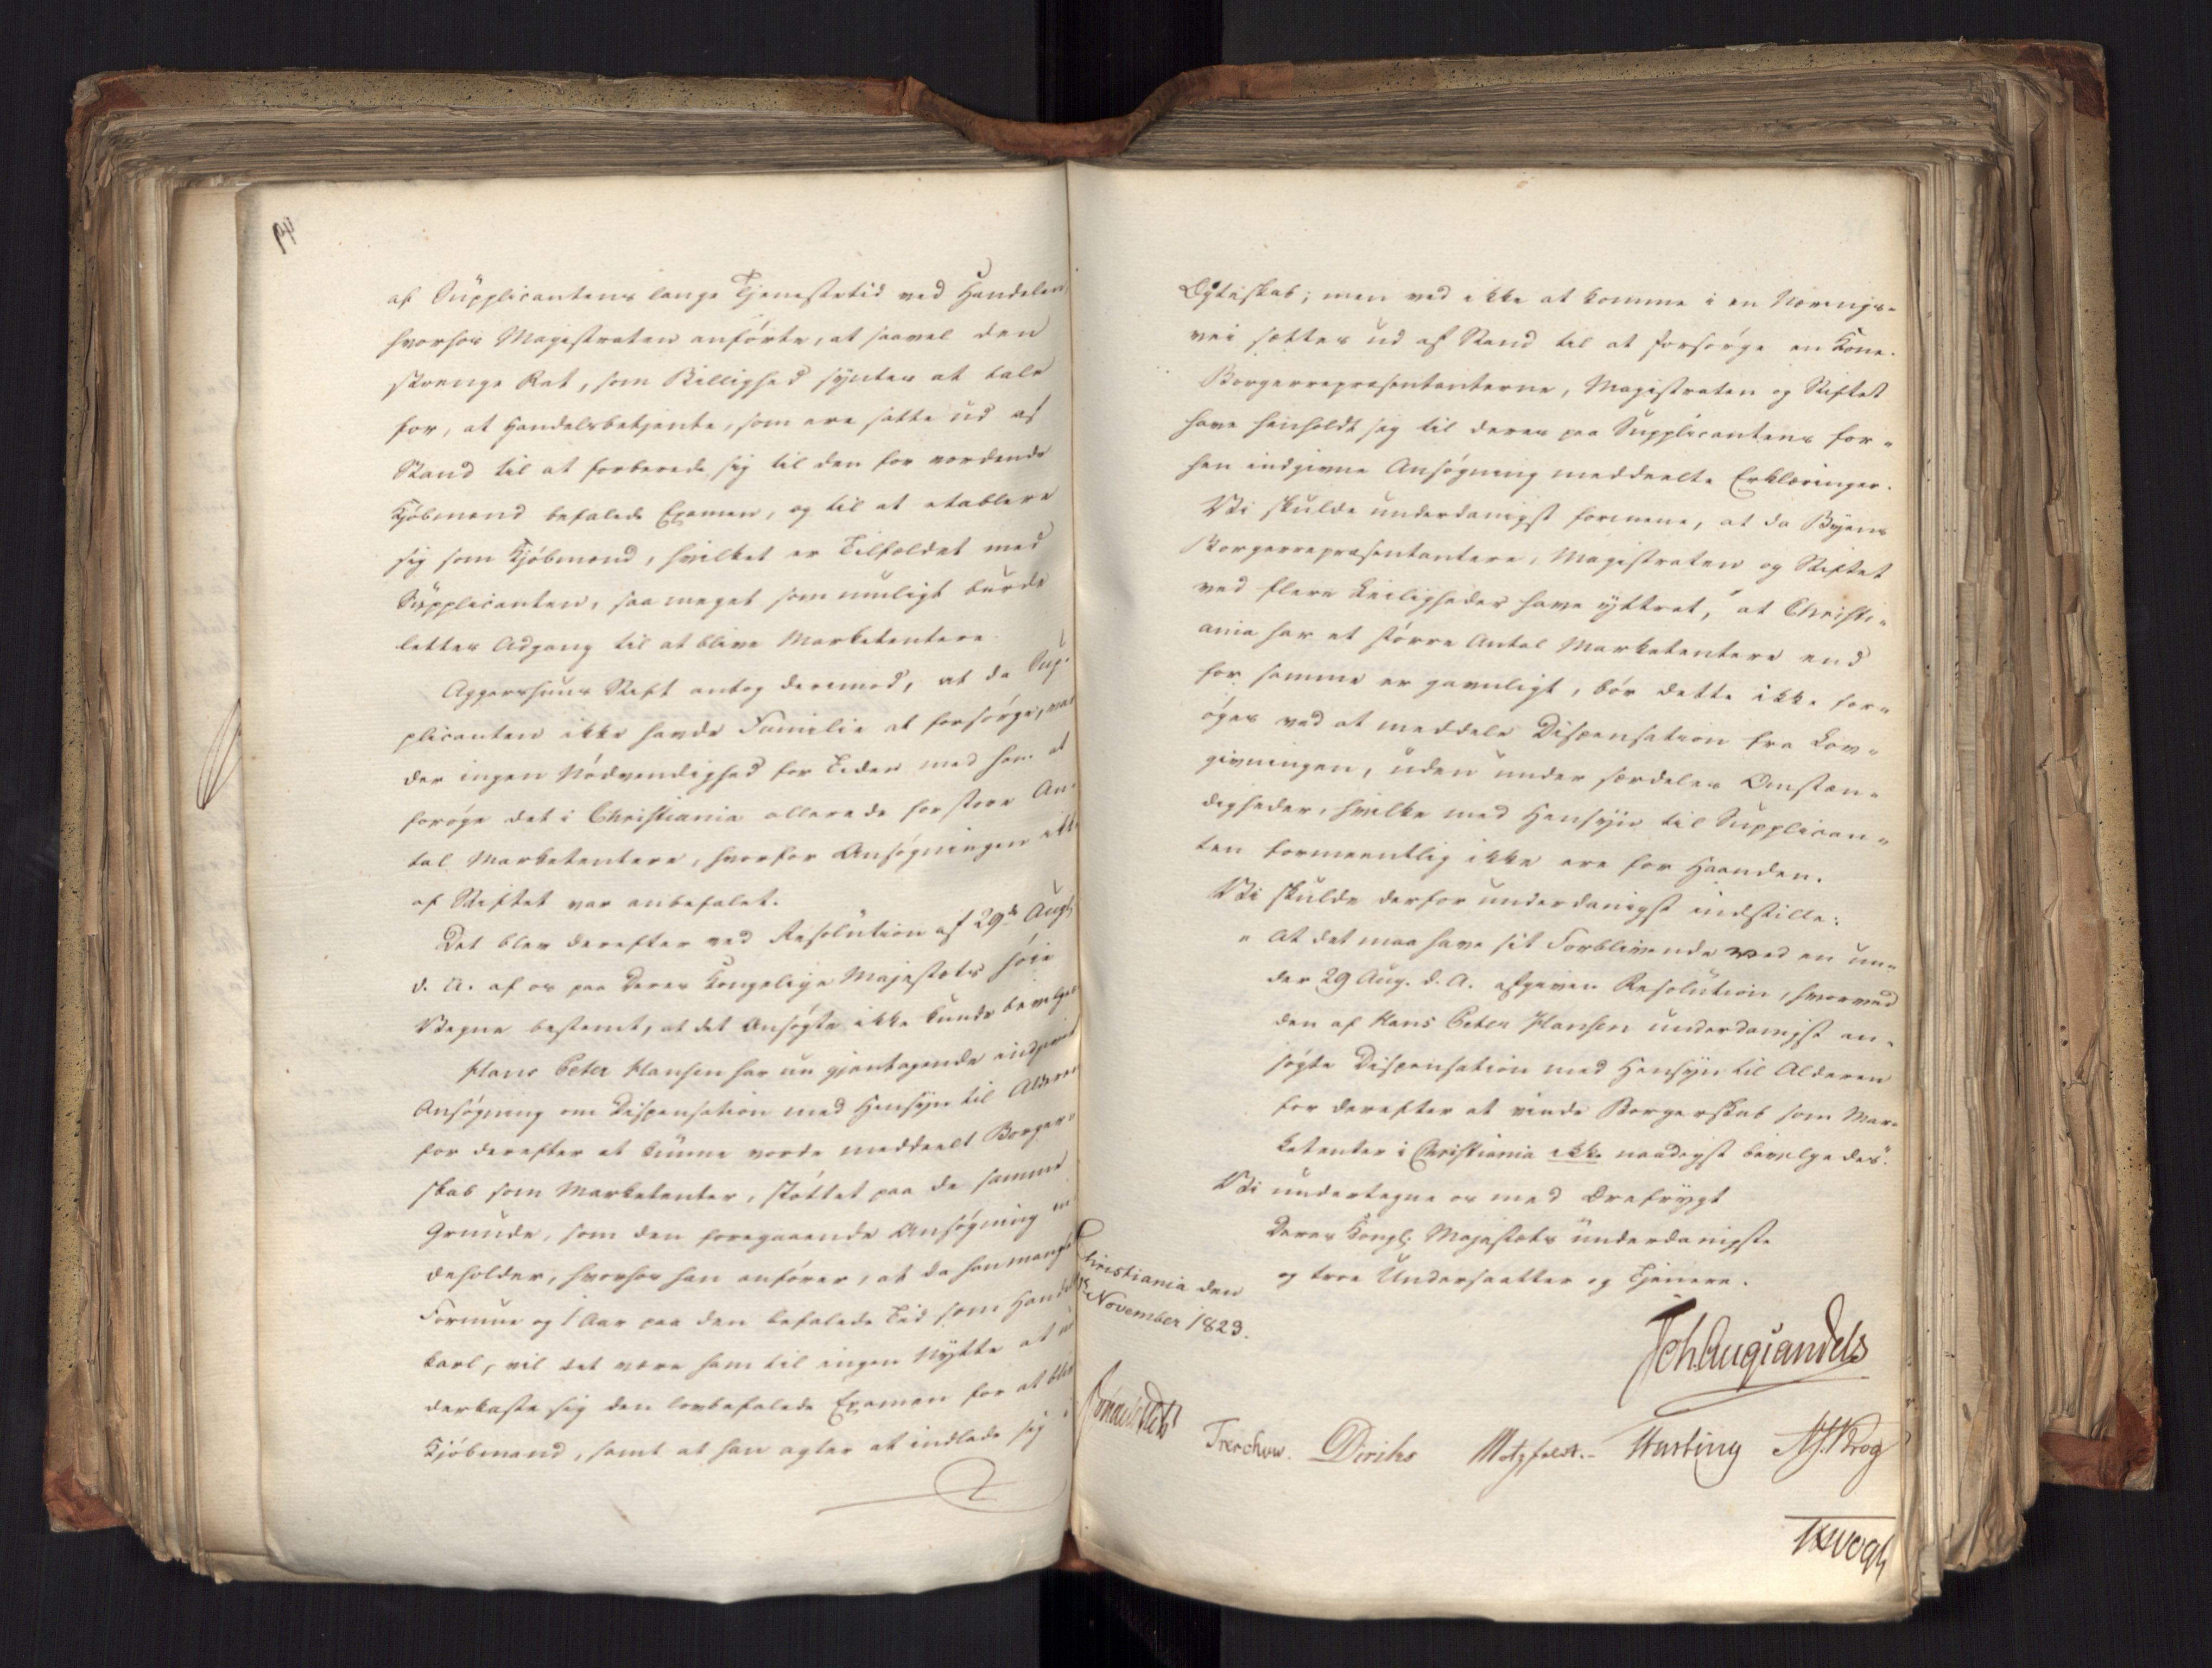 af Supplicantens lange Tjenestetid ved Handelen,
hvorhos Magistraten anförte, at saavel den
strenge Ret, som Billighed syntes at tale
for, at Handelsbetjente, som ere satte ud af
Stand til at forberede sig til den for vordende
Kjöbmænd befalede Examen, og til at etablere
sig som Kjöbmænd, hvilket er Tilfældet med
Supplicanten, saa meget som muligt burde
lettes Adgang til at blive Marketentere.
Aggershuus Stift antog derimod, at da Sup-
plicanten ikke havde Familie at forsörge, var
der ingen Nödvendighed for Tiden med ham at
foröge det i Christiania allerede for store An-
tal Marketentere, hvorfor Ansögningen ikke
af Stiftet var anbefalet.
Det blev derefter ved Resolution af 29de Augt
d. A. af os paa Deres Kongelige Majestæts höie
Vegne bestemt, at det Ansögte ikke kunde bevilges
Hans Peter Hansen har nu gjentagende indgivet
Ansögning om Dispensation med Hensyn til Alderen
for derefter at kunne vorde meddeelt Borger-
skab som Marketenter, stöttet paa de samme
Grunde, som den foregaaende Ansögning in-
deholder, hvorhos han anförer, at da han mangler
Formue og 1 Aar paa den befalede Tid som Handels
karl, vil det være ham til ingen Nytte at un
derkaste sig den lovbefalede Examen for at blive
Kjöbmand, samt at han agter at indlade sig i
Ægteskab; men ved ikke at komme i en Nærings-
vei sættes ud af Stand til at forsörge en Kone.
Borgerrepræsentanterne, Magistraten og Stiftet
have henholdt sig til deres paa Supplicantens for-
hen indgivne Ansögning meddeelte Erklæringer.
Vi skulde underdanigst formene, at da Byens
Borgerrepræsentantere, Magistraten og Stiftet
ved flere Leiligheder have yttret, at Christi-
ania har et större Antal Marketentere end
for samme er gavnligt, bör dette ikke for-
öges ved at meddele Dispensation fra Lov-
givningen, uden under særdeles Omstæn-
digheder, hvilke med Hensyn til Supplican-
ten formeentlig ikke ere for Haanden.
Vi skulde derfor underdanigst indstille:
" At det maa have sit Forblivende ved en un-
der 29 Aug. d. A. afgiven Resolution, hvorved
den af Hans Peter Hansen underdanigst an-
sögte Dispensation med Hensyn til Alderen
for derefter at vinde Borgerskab som Mar-
ketenter i Christiania ikke naadigst bevilgedes".
Vi undertegne os med Ærefrygt
Deres Kongl. Majestæts underdanigste
og troe Undersaatter og Tjenere.
Christiania den
November 1823.
Joh. Aug. Sandels
Treschow. Diriks Motzfeldt. Krog